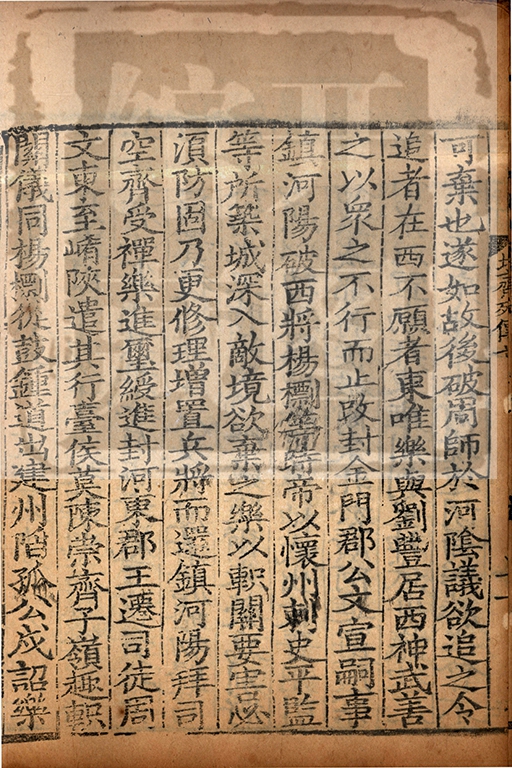 可棄也遂如故後破周師於河陰議欲追之令
追者在西不願者東唯樂與劉豐居西神武善
之以衆之不行而止改封金門郡公文宣嗣事
鎮河陽破西將楊檦等時帝以懷州刺史平監
等所築城深入敵境欲棄之樂以軹關要害必
須防固乃更修理增置兵將而還鎮河陽拜司
空齊受禪樂進璽綬進封河東郡王遷司徒周
文東至崤陝遣其行臺侯莫陳崇齊子嶺趣軹
關儀同楊檦從鼓鍾道出建州陷孤公戍詔樂